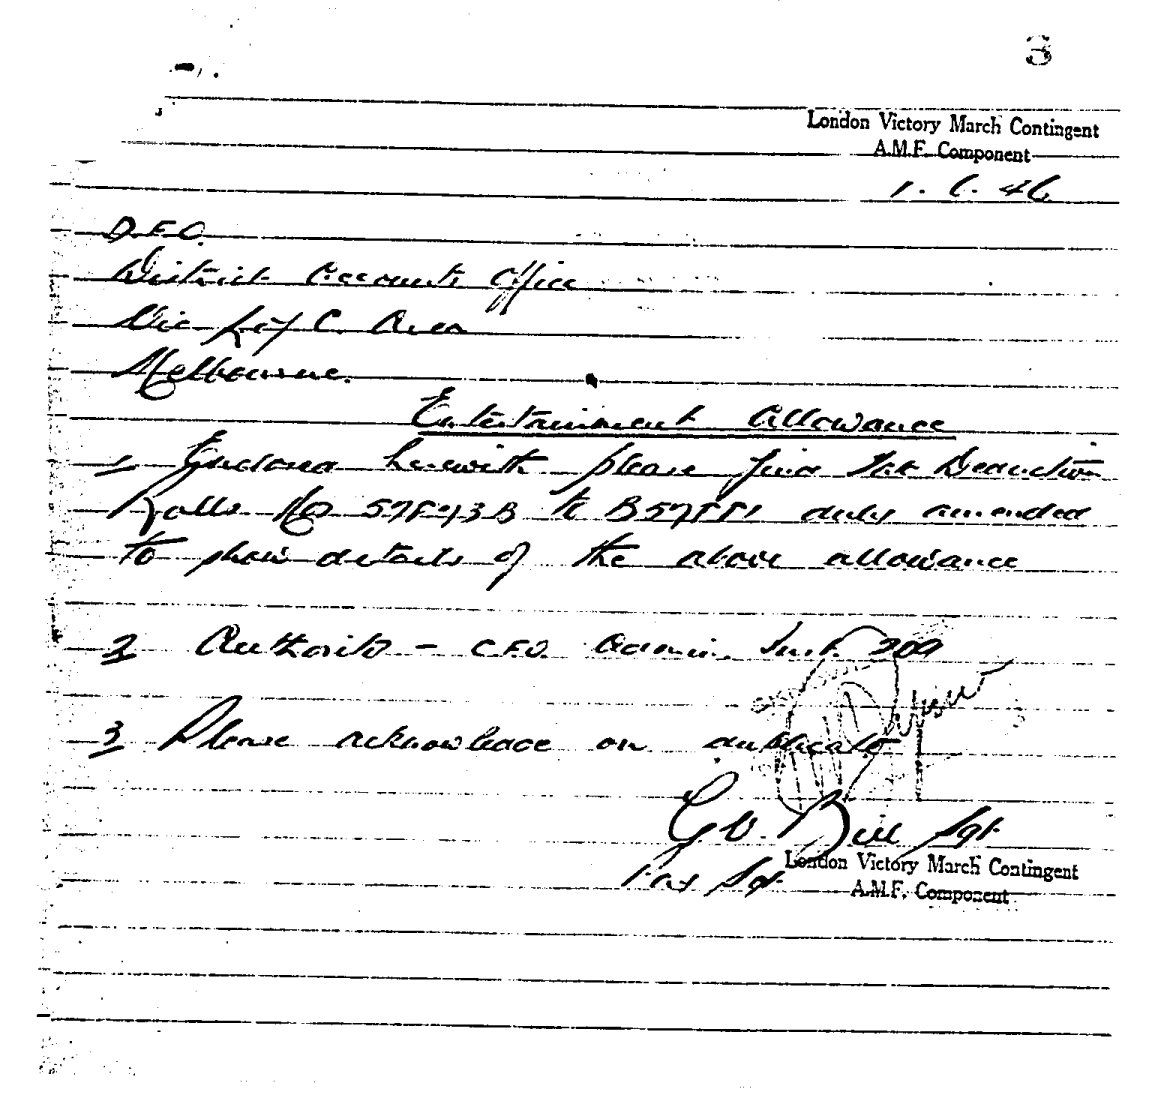 3
London Victory March Contingent
A.M.F. Component
1. 6. 46
D.F.O.
District Accounts Office
Vic L of C. Area
Melbourne.
Entertainment Allowance
1 Enclosed herewith please find Tax Deduction
Rolls No to duly amended
to show details of the above allowance
2 Authority - C.F.O. Admin. Inst. 209
3 Please acknowledge on duplicate
G.V. Bill Sgt
London Victory March Contingent
Pay Sgt
A.M.F. Component